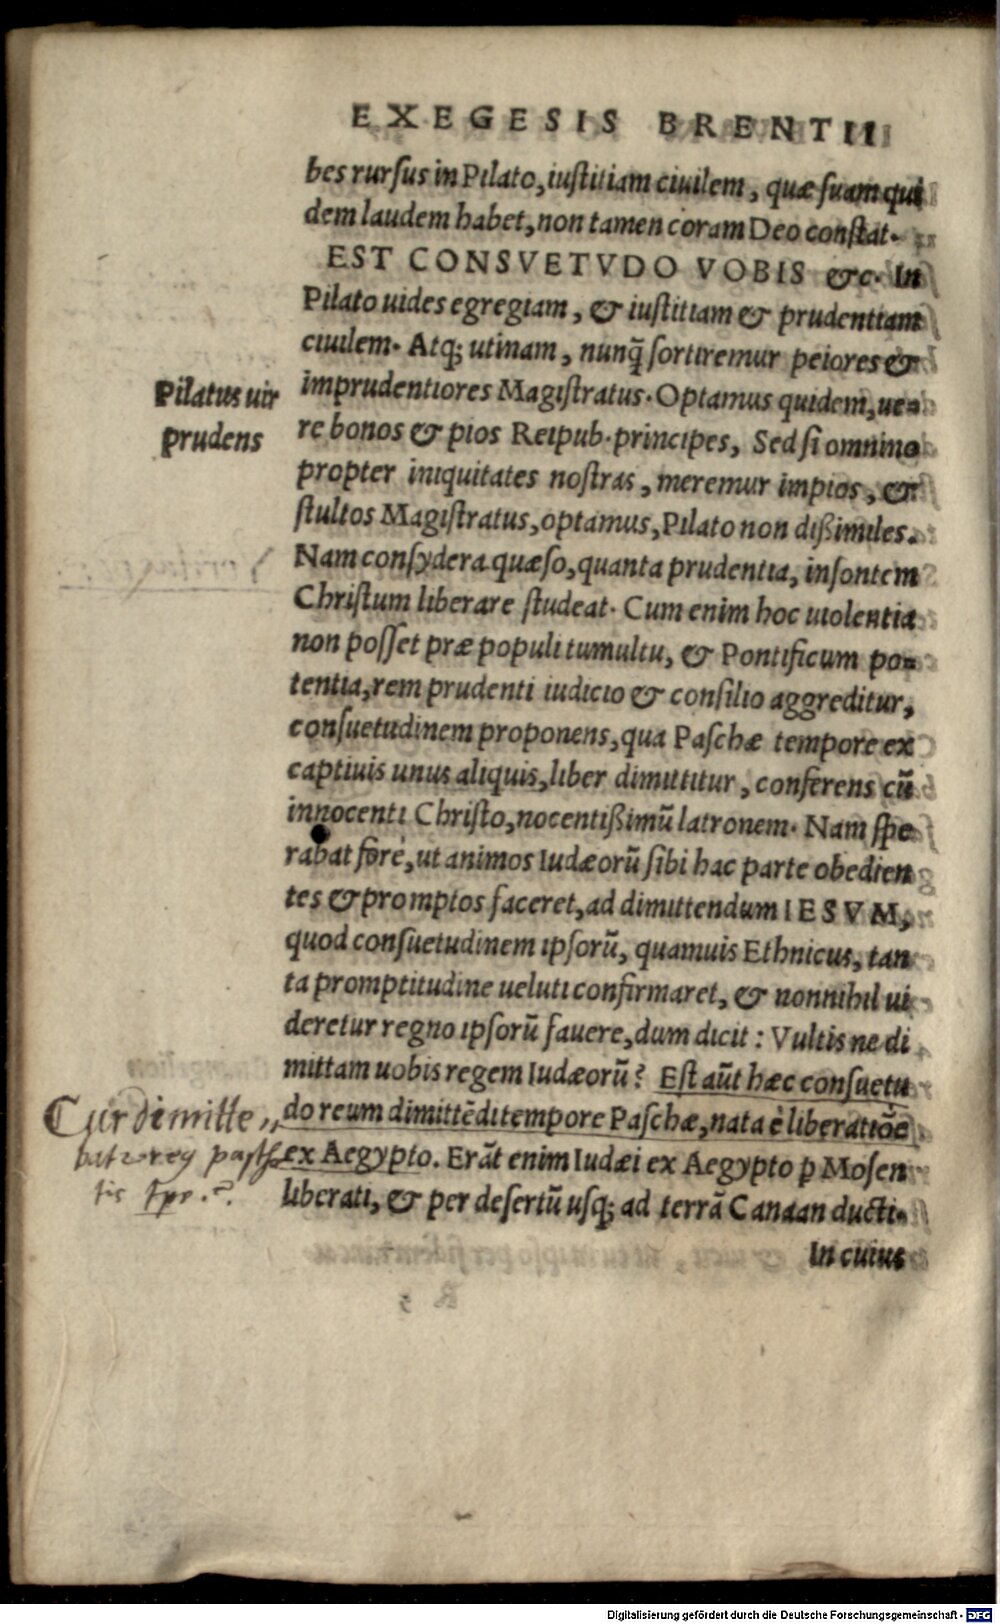 EXEGESIS BRENTII
bes rursus in Pilato, iustitiam ciuilem, quæ suam qui
dem laudem habet, non tamen coram Deo constat.
EST CONSVETVDO VOBIS &c. In
Pilato uides egregiam, & iustitiam & prudentiam
ciuilem. Atq; utinam, nunq̃ sortiremur peiores &
imprudentiores Magistratus. Optamus quidem, ue=
re bonos & pios Reipub. principes, Sed si omnino
propter iniquitates nostras, meremur impios, &
stultos Magistratus, optamus, Pilato non dißimiles.
Nam consydera quæso, quanta prudentia, insontem
Christum liberare studeat. Cum enim hoc uiolentia
non posset præ populi tumultu, & Pontificum po=
tentia, rem prudenti iudicio & consilio aggreditur,
consuetudinem proponens, qua Paschæ tempore ex
captiuis unus aliquis, liber dimittitur, conferens cũ
innocenti Christo, nocentißimũ latronem. Nam spe
rabat fore, ut animos Iudæorũ sibi hac parte obedien
tes & promptos faceret, ad dimittendum IESVM,
quod consuetudinem ipsorũ, quamuis Ethnicus, tan
ta promptitudine ueluti confirmaret, & nonnihil ui
deretur regno ipsorũ fauere, dum dicit: Vultis ne di
mittam uobis regem Iudæorũ? Est aũt hæc consuetu
do reum dimittẽdi tempore Paschæ, nata è liberatiõe
ex Aegypto. Erãt enim Iudæi ex Aegypto p Mosen
liberati, & per desertũ usq; ad terrã Canaan ducti.
In cuius
Pilatus uir
prudens
Cur dimitte
batur reus
tis tpr.?
Digitalisierung gefördert durch die Deutsche Forschungsgemeinschaft - DFG